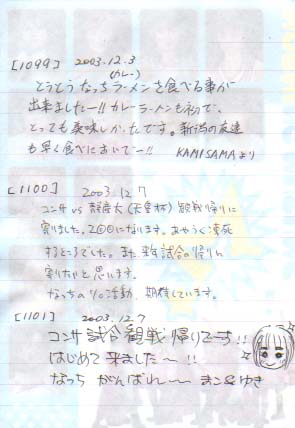 [1099] 2003.12.3
(カレー)
とうとうなっちラーメンを食べる事が
出来ましたー!! カレーラーメンも初で、
とっても美味しかったです。新潟の友達
も早く食べにおいでー!! KAMISAMAより
[1100] 2003.12.7
コンサ vs 静産大(天皇杯)観戦帰りに
寄りました。2(になります。あやうく凍死
するところでした。また来年試合の帰りに
寄りたいと思います。
なっちのソロ活動、期待しています。
[1101] 2003.12.7
コンサ試合観戦帰りでーす!!
はじめて来ましたー!!
なっち がんばれー まこ&ゆき